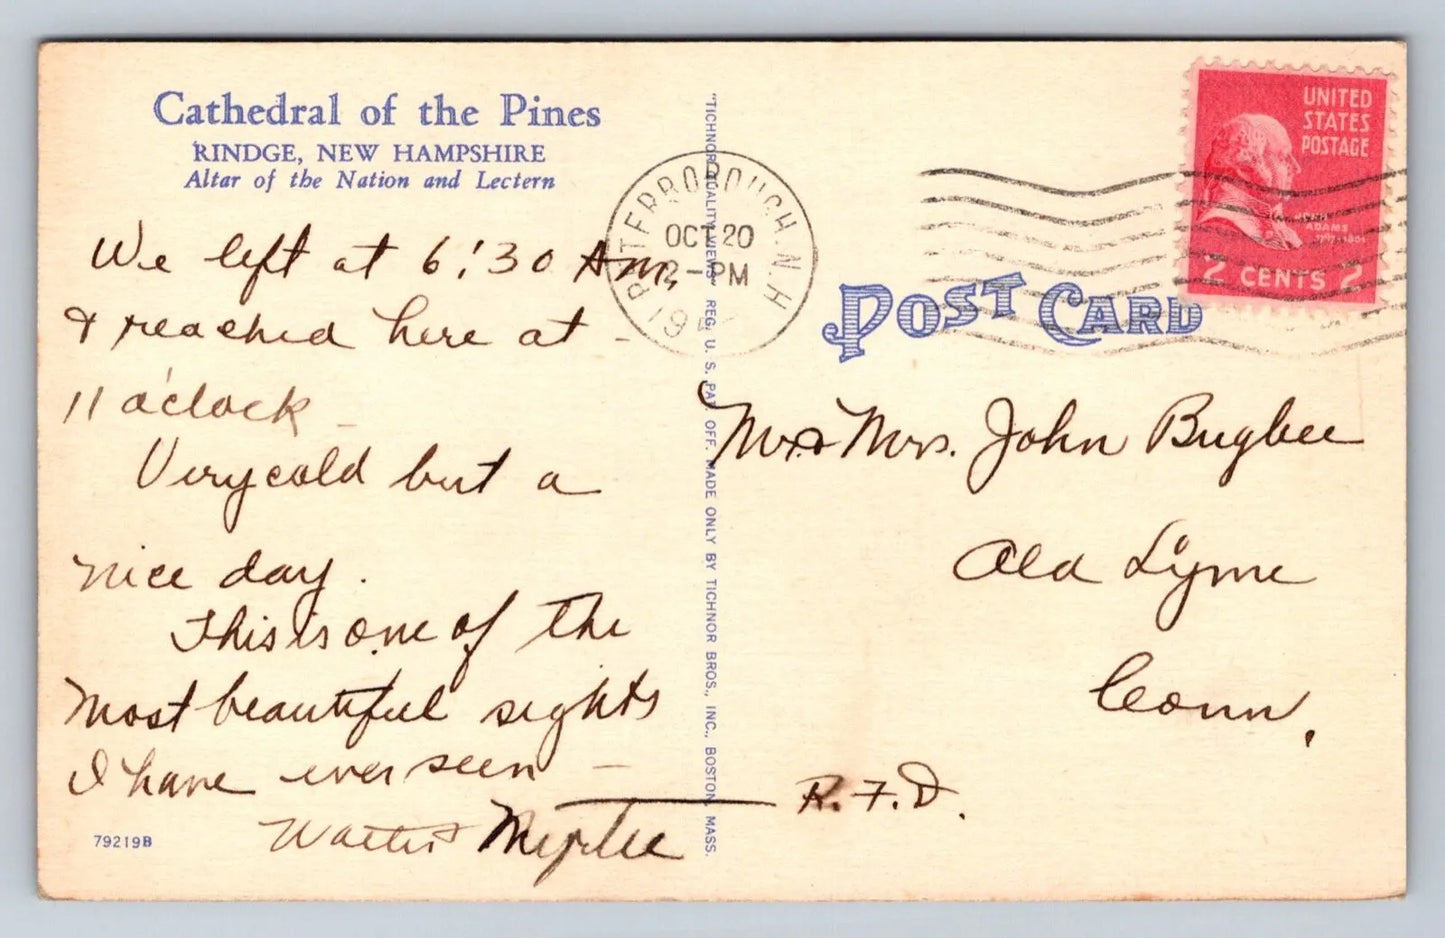 Cathedral of the Pines
RINDGE, NEW HAMPSHIRE
Altar of the Nation and Lectern
We left at 6:30 Am,
& reached here at -
11 o'clock -
Very cold but a
nice day.
This is one of the
most beautiful sights
I have ever seen -
Walter & Myrtle
79219B
"TICHNOR QUALITY VIEWS" REG. U. S. PAT. OFF. MADE ONLY BY TICHNOR BROS., INC., BOSTON, MASS.
PETERBOROUGH, N.H.
OCT 20
2-PM
19
UNITED
STATES
POSTAGE
ADAMS
2 CENTS 2
POST CARD
Mr. & Mrs. John Bugbee
Old Lyme
Conn,
R.F.D.